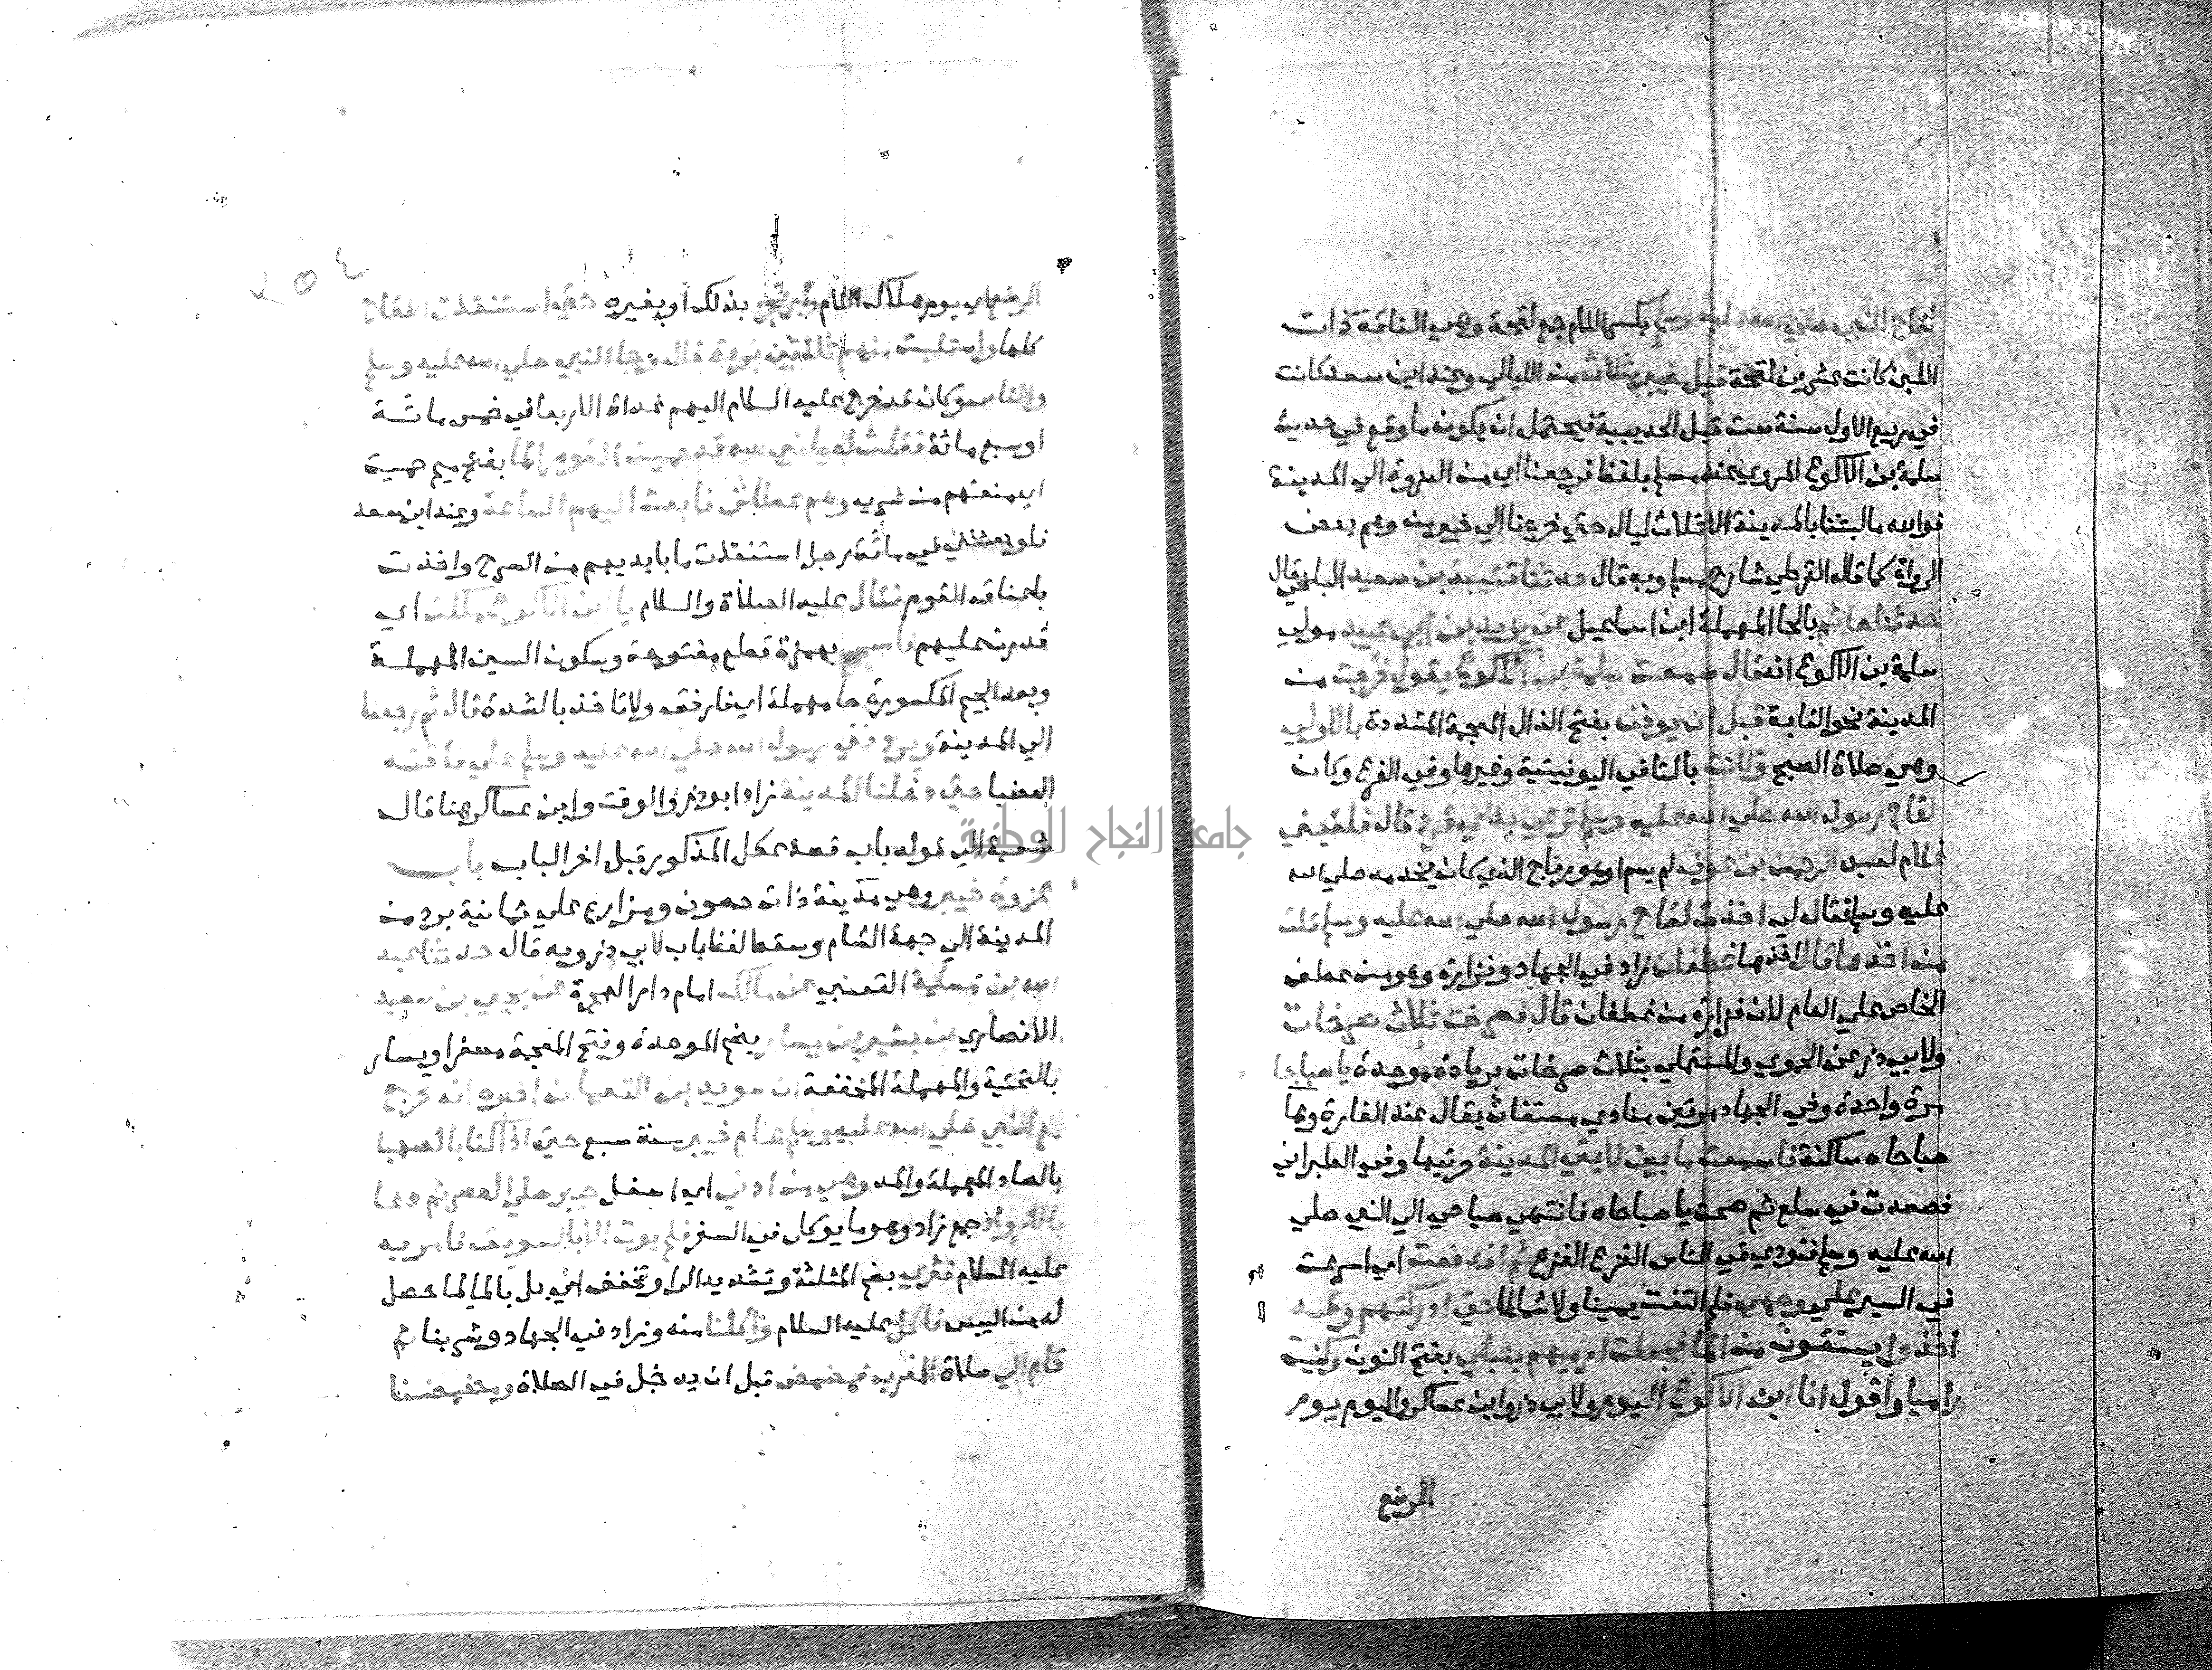 لقاح النبي صلي الله عليه وسلم بكسر اللام جمع لقحة وهي الناقة ذات
اللبن كانت عشرين لقحة قبل خيبر بثلاث من الليالي وعند ابن سعد كانت
في ربيع الاول سنة ست قبل الحديبية فيحتمل ان يكون ما وقع في حديث
سلمة بن الاكوع المروي عند مسلم بلفظ فرجعنا اي من الغزوة الي المدينة
فوالله ما لبثنا بالمدينة الا ثلاث ليال حتي خرجنا الي خيبر من وهم بعض
الرواة كما قاله القرطبي شارح مسلم وبه قال حدثنا قتيبة بن سعيد البلخي قال
حدثنا حاتم بالحا المهملة ابن اسماعيل عن يزيد بن ابي عبيد مولي
سلمة بن الاكوع انه قال سمعت سلمة بن الاكوع يقول خرجت من
المدينة نحو الغابة قبل ان يوذن بفتح الذال المعجمة المشددة بالاولي
وهي صلاة الصبح وكانت بالتا في اليونينية وغيرها وفي الفرع وكان
لقاح رسول الله صلي الله عليه وسلم ترعي بذي قرد قال فلقيني
غلام لعبد الرحمن بن عوف لم يسم او هو رباح الذي كان يخدمه صلي الله
عليه وسلم فقال لي اخذت لقاح رسول الله صلي الله عليه وسلم قلت
من اخذها قال اخذها غطفان زاد في الجهاد وفزارة وهو من عطف
الخاص علي العام لان فزارة من غطفان قال فصرخت ثلاث صرخات
ولابي ذر عن الحموي والمستملي بثلاث صرخات بزيادة موحدة يا صباحا
مرة واحدة وفي الجهاد مرتين منادي مستغاث يقال عند الغارة وها
صباحاه ساكنة فاسمعت ما بين لابتي المدينة حرتيها وفي الطبراني
فصعدت في سلع ثم صحت يا صباحاه فانتهي صياحي الي النبي صلي
الله عليه وسلم فنودي في الناس الفزع الفزع ثم اندفعت اي اسرعت
في السير علي وجهي فلم التفت يمينا ولا شمالا حتي ادركتهم وقد
اخذوا يستقون من الما فجعلت ارميهم بنبلي بفتح النون وكنت
راميا واقول انا ابن الاكوع اليوم ولابي ذر وابن عساكر واليوم يوم
الرضع
٢٥٤
الرضع اي يوم هلاك اللئام وارتجز بذلك او بغيره حتي استنقذت اللقاح
كلها واستلبت منهم ثلاثين بردة قال وجا النبي صلي الله عليه وسلم
والناس وكان قد خرج عليه السلام اليهم غداة الاربعا في خمس مائة
او سبع مائة فقلت له يا نبي الله قد حميت القوم الما بفتح ميم حميت
اي منعتهم من شربه وهم عطاش فابعث اليهم الساعة وعند ابن سعد
فلو بعثتني في مائة رجل استنقذت ما بايديهم من السرح واخذت
باعناق القوم فقال عليه الصلاة والسلام يا ابن الاكوع ملكت اي
قدرت عليهم فاسجح بهمزة قطع مفتوحة وسكون السين المهملة
وبعد الجيم المكسورة حا مهملة اي فارفق ولا تاخذ بالشدة قال ثم رجعنا
الي المدينة ويردفني رسول الله صلي الله عليه وسلم علي ناقته
العضبا حتي دخلنا المدينة زاد ابو ذر والوقت وابن عساكر هنا قال
شعبة الي قوله باب قصة عكل المذكور قبل اخر الباب باب
غزوة خيبر وهي مدينة ذات حصون ومزارع علي ثمانية برد من
المدينة الي جهة الشام وسقط لفظ باب لابي ذر وبه قال حدثنا عبد
الله بن مسلمة القعنبي عن مالك امام دار الهجرة عن يحيي بن سعيد
الانصاري عن بشير بن يسار بضم الموحدة وفتح المعجمة مصغرا ويسار
بالتحتية والمهملة المخففة ان سويد بن النعمان اخبره انه خرج
مع النبي صلي الله عليه وسلم عام خيبر سنة سبع حتي اذا كنا بالصهبا
بالصاد المهملة والمد وهي من ادني اي اسفل خيبر صلي العصر ثم دعا
بالازواد جمع زاد وهو ما يوكل في السفر فلم يوت الا بالسويق فامر به
عليه السلام فثري بضم المثلثة وتشديد الرا وتخفف اي بل بالما لما حصل
له من اليبس فاكل عليه السلام واكلنا منه وزاد في الجهاد وشربنا ثم
قام الي صلاة المغرب فمضمض قبل ان يدخل في الصلاة ومضمضنا
جامعة النجاح الوطنية